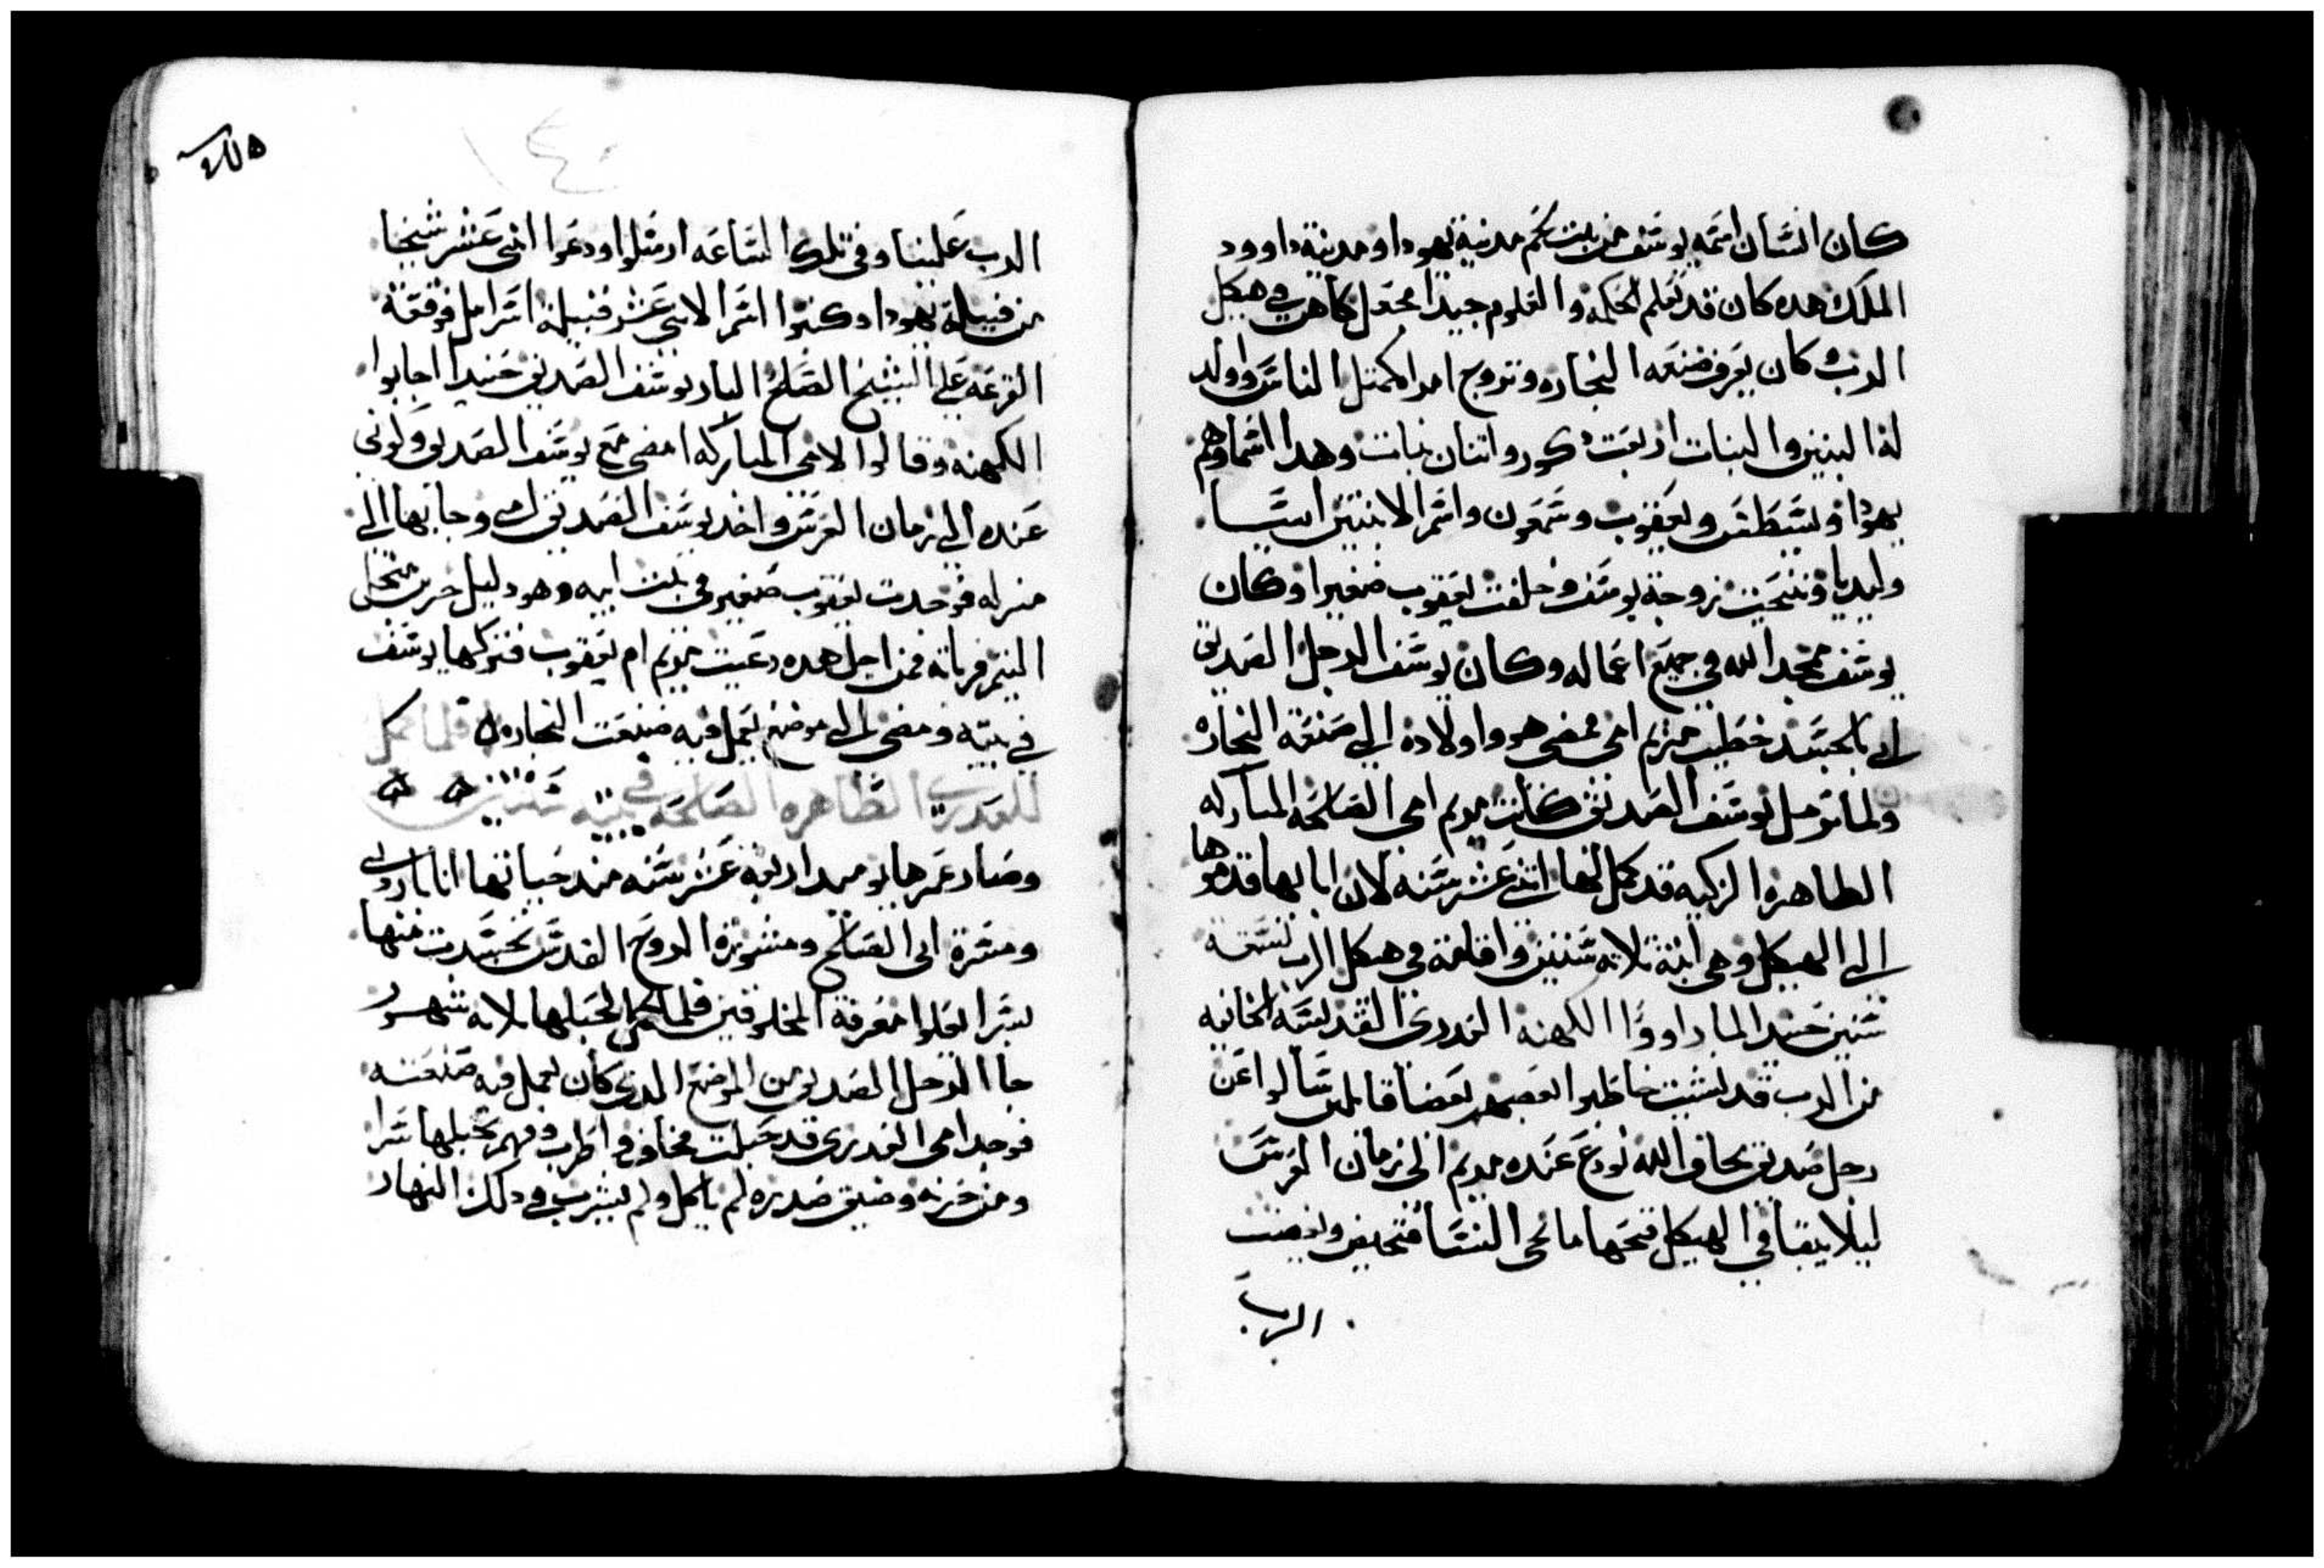 كان انسان اسمه يوسف من بيت لحم مدينة يهودا ومدينة داوود
الملك هده كان قد تعلم الحكمه والعلوم جيدا فجعل كاهن في هيكل
الرب وكان يعرف صنعه النجاره وتزوج امراه كمتل الناس واولد
له البنين والبنات اربعت دكور واتنان بنات وهدا اسماوهم
يهودا ويسطس ويعقوب وسمعون واسم الابنتين اسيا
وليديا وتنيحت زوجة يوسف وخلفت يعقوب صغيرا وكان
يوسف يمجد الله في جميع اعماله وكان يوسف الرجل الصديق
ابي بالجسد خطيب مريم امي يمضي هو واولاده الي صنعة النجاره
ولما ترمل يوسف الصديق كانت مريم امي الصالحه المباركه
الطاهره الزكيه قد كمل لها اتني عشر سنه لان ابايها قدموها
الي الهيكل وهي ابنة تلاته سنين واقامة في هيكل الرب تسعه
سنين حينيدا لما راووا الكهنه العدرى القديسه الخايفه
من الرب قد نشيت خاطبوا بعضهم بعضا قايلين سالوا عن
رجل صديق يخاف الله نودع عنده مريم الي زمان العرس
ليلا يبقا في الهيكل فيجيها مايجي النسا فتحيض ويغضب
الرب
الرب علينا وفي تلك الساعه ارسلوا ودعوا اتني عشر شيخا
من قبيلة يهودا وكتبوا اسم الاتني عشر قبيلة اسراييل فوقعة
القرعه علي الشيخ الصالح البار يوسف الصديق حينيدا اجابوا
الكهنه وقالوا لامي المباركه امضي مع يوسف الصديق وكوني
عنده الي زمان العرس واخد يوسف الصديق امي وجا بها الي
منزله فوجدت يعقوب صغير في بيت ابيه وهو دليل حزين مثل
اليتم فربانه فمن اجل هده دعيت مريم ام يعقوب فتركها يوسف
في بيته ومضي الي موضع يعمل فيه صنعت النجاره فلما كمل
للعدرى الطاهره الصالحه في بيته سنتين
وصار عمرها يوميدا اربعه عشر سنه مند حيانها انا بارادتي
ومسرة ابي الصالح ومشورة الروح القدس تجسدت منها
بسر ايعلوا معرفة المخلوقين فلما كمل لحبلها تلاته شهور
جا الرجل الصديق من الموضع الدي كان يعمل فيه صنعته
فوجد امي العدرى قد حبلت فخاف واطرب وفهم بحبلها سرا
ومن حزنه وضيق صدره لم ياكل ولم يشرب في دلك النهار